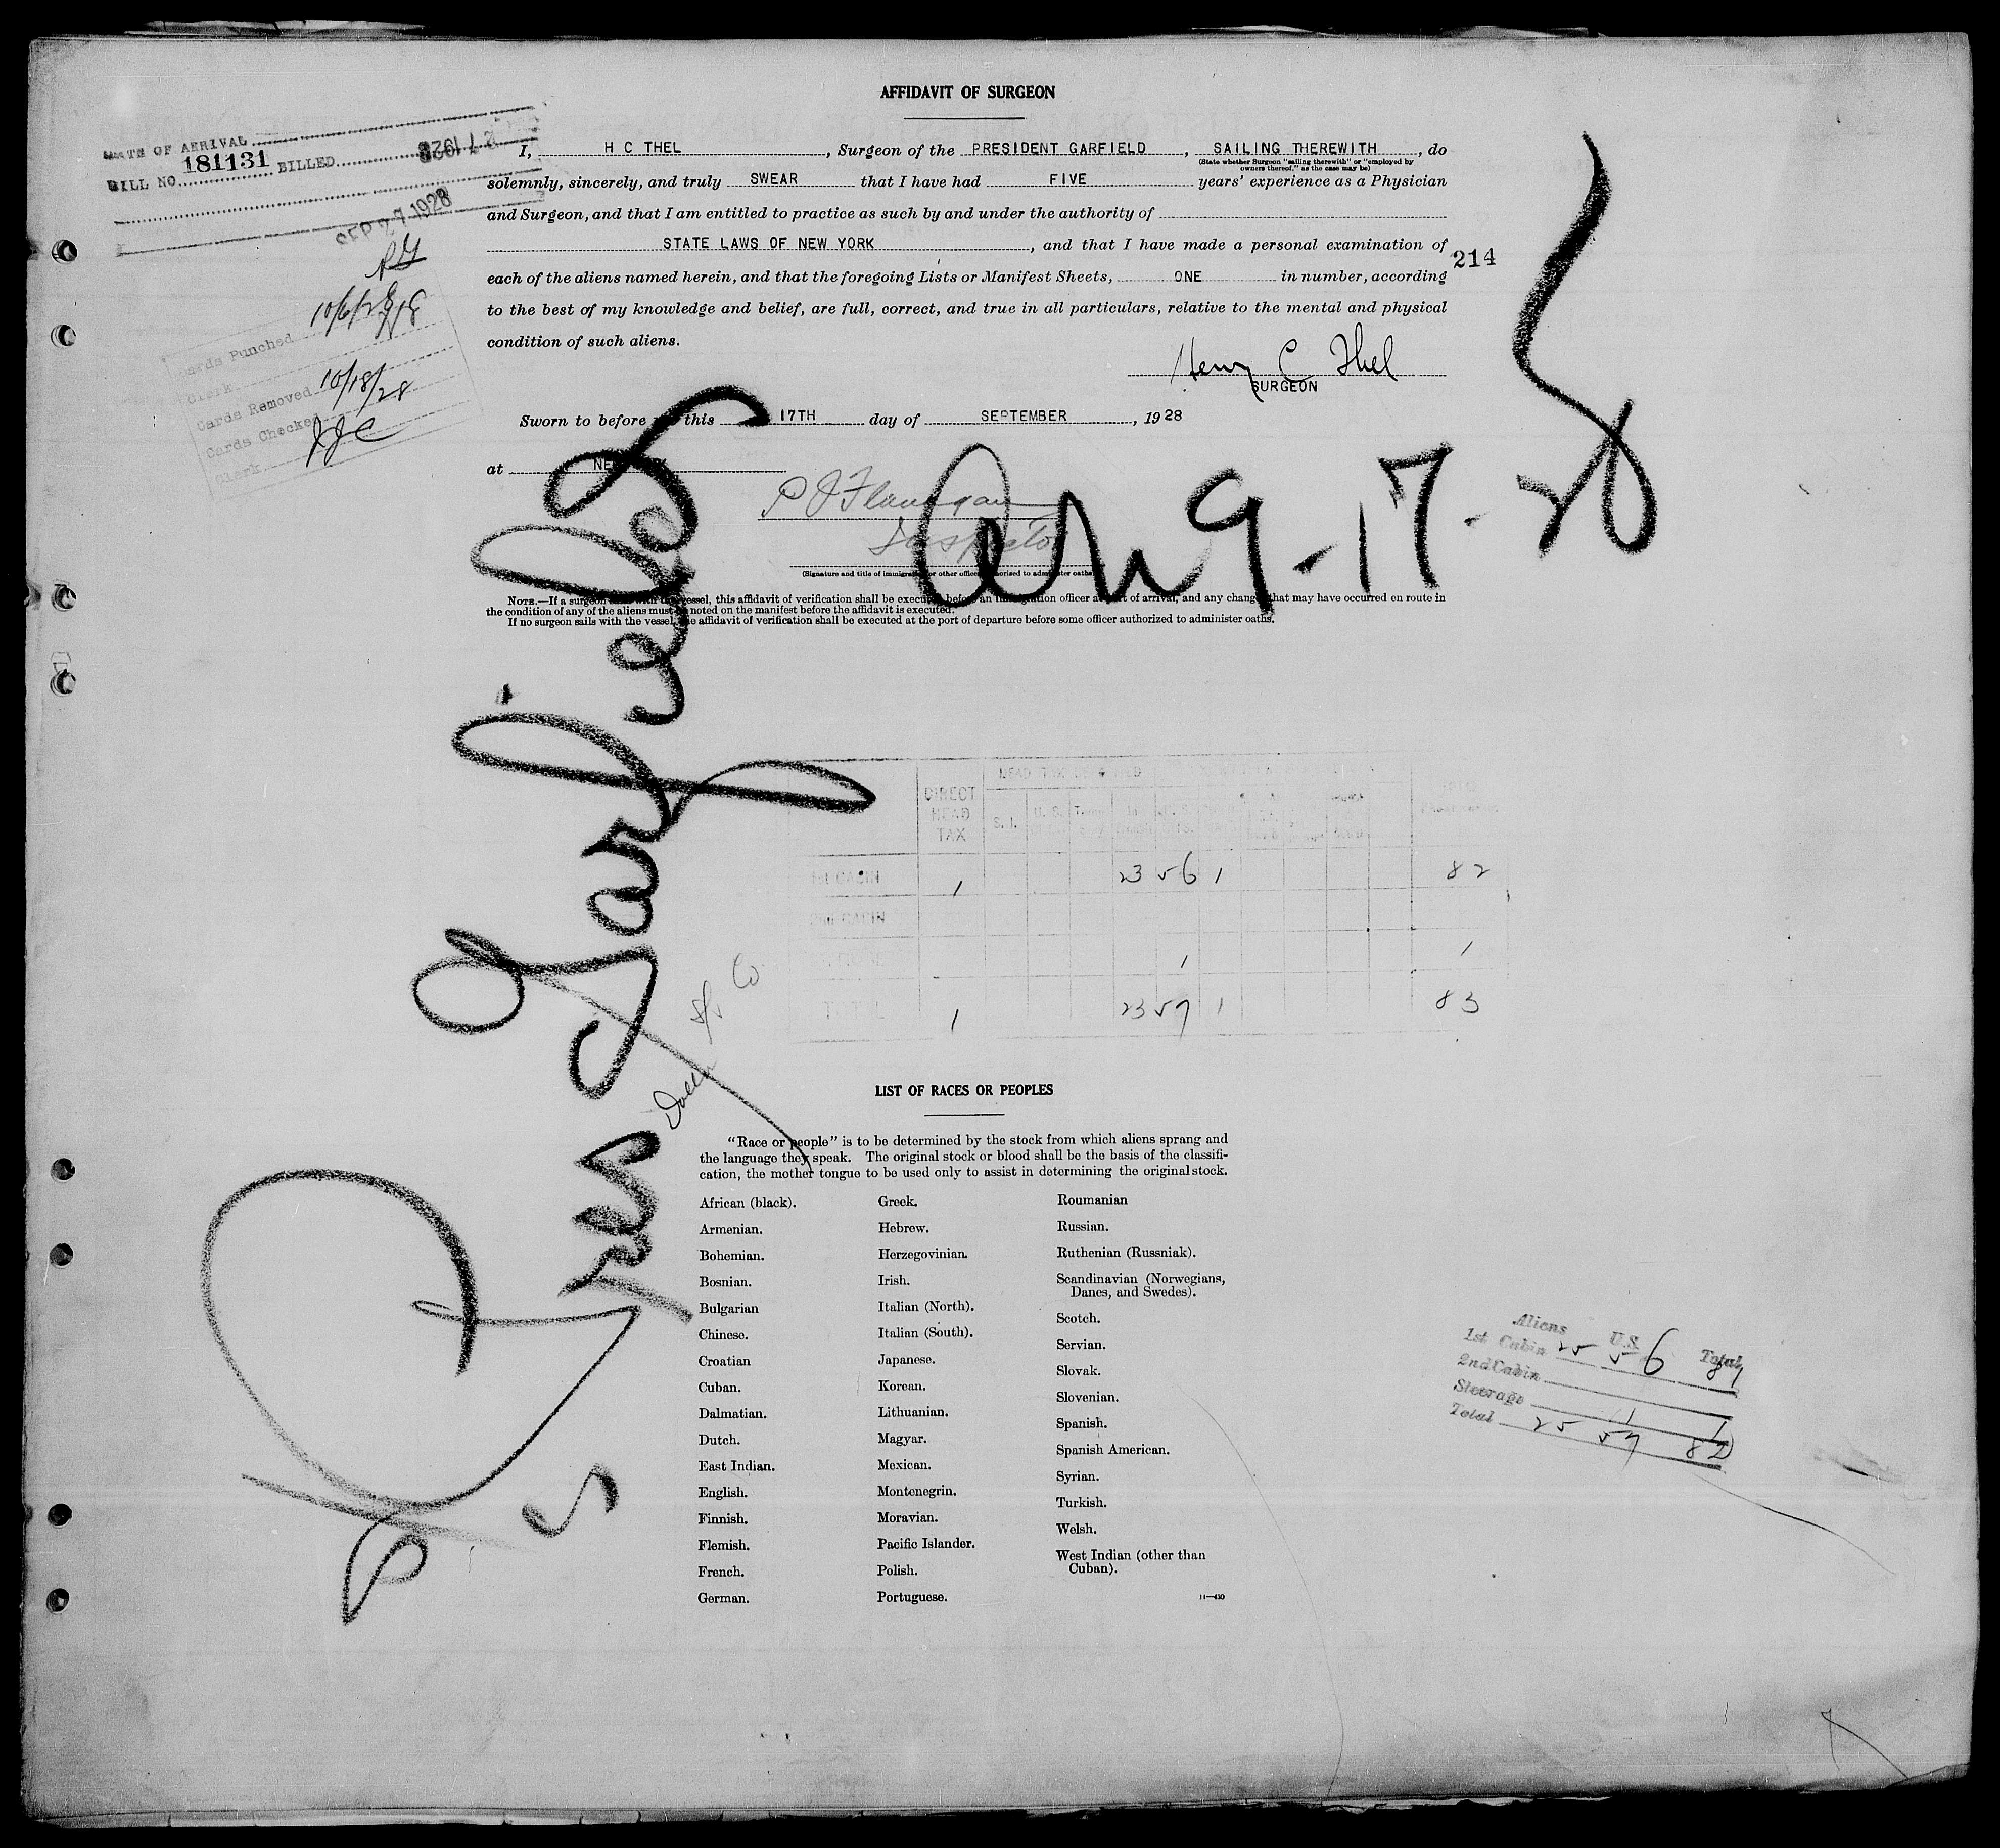 AFFIDAVIT OF SURGEON
DATE OF ARRIVAL
BILL NO. 181131 BILLED
SEP 27 1928
Cards Punched 10/6/28
Clerk
Cards Removed 10/18/28
Cards Checked
Clerk JJC
I, H C THEL, Surgeon of the PRESIDENT GARFIELD, SAILING THEREWITH, do
(State whether Surgeon "sailing therewith" or "employed by
owners thereof," as the case may be)
solemnly, sincerely, and truly SWEAR that I have had FIVE years' experience as a Physician
and Surgeon, and that I am entitled to practice as such by and under the authority of
STATE LAWS OF NEW YORK, and that I have made a personal examination of
214
each of the aliens named herein, and that the foregoing Lists or Manifest Sheets, ONE in number, according
to the best of my knowledge and belief, are full, correct, and true in all particulars, relative to the mental and physical
condition of such aliens.
Henry C Thel
SURGEON
Sworn to before this 17TH day of SEPTEMBER, 1928
at NEW YORK
P J Flanigan
Inspector
(Signature and title of immigration or other officer authorised to administer oaths)
Arr 9-17-28
NOTE.—If a surgeon sails with the vessel, this affidavit of verification shall be executed before an immigration officer at port of arrival, and any change that may have occurred en route in
the condition of any of the aliens must be noted on the manifest before the affidavit is executed.
If no surgeon sails with the vessel, the affidavit of verification shall be executed at the port of departure before some officer authorized to administer oaths.
SS Pres Garfield
Dollar SS Co
DIRECT HEAD TAX S. I. U. S.
1st CABIN 1 23 56 1 82
2nd CABIN
1 1
TOTAL 1 23 57 1 83
LIST OF RACES OR PEOPLES
"Race or people" is to be determined by the stock from which aliens sprang and
the language they speak. The original stock or blood shall be the basis of the classifi-
cation, the mother tongue to be used only to assist in determining the original stock.
African (black).
Armenian.
Bohemian.
Bosnian.
Bulgarian
Chinese.
Croatian
Cuban.
Dalmatian.
Dutch.
East Indian.
English.
Finnish.
Flemish.
French.
German.
Greek.
Hebrew.
Herzegovinian.
Irish.
Italian (North).
Italian (South).
Japanese.
Korean.
Lithuanian.
Magyar.
Mexican.
Montenegrin.
Moravian.
Pacific Islander.
Polish.
Portuguese.
Roumanian
Russian.
Ruthenian (Russniak).
Scandinavian (Norwegians,
Danes, and Swedes).
Scotch.
Servian.
Slovak.
Slovenian.
Spanish.
Spanish American.
Syrian.
Turkish.
Welsh.
West Indian (other than
Cuban).
Aliens U.S. Total
1st Cabin 25 56 81
2nd Cabin
Steerage 1 1
Total 25 57 82